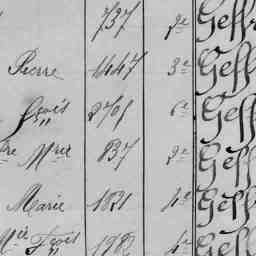 737 2e Geff
Pierre 1447 3e Geff
Fçois 2701 6e Geff
Mrie 837 2e Geff
Marie 1831 4e Geff
Mie Fçois 1982 4e Geff